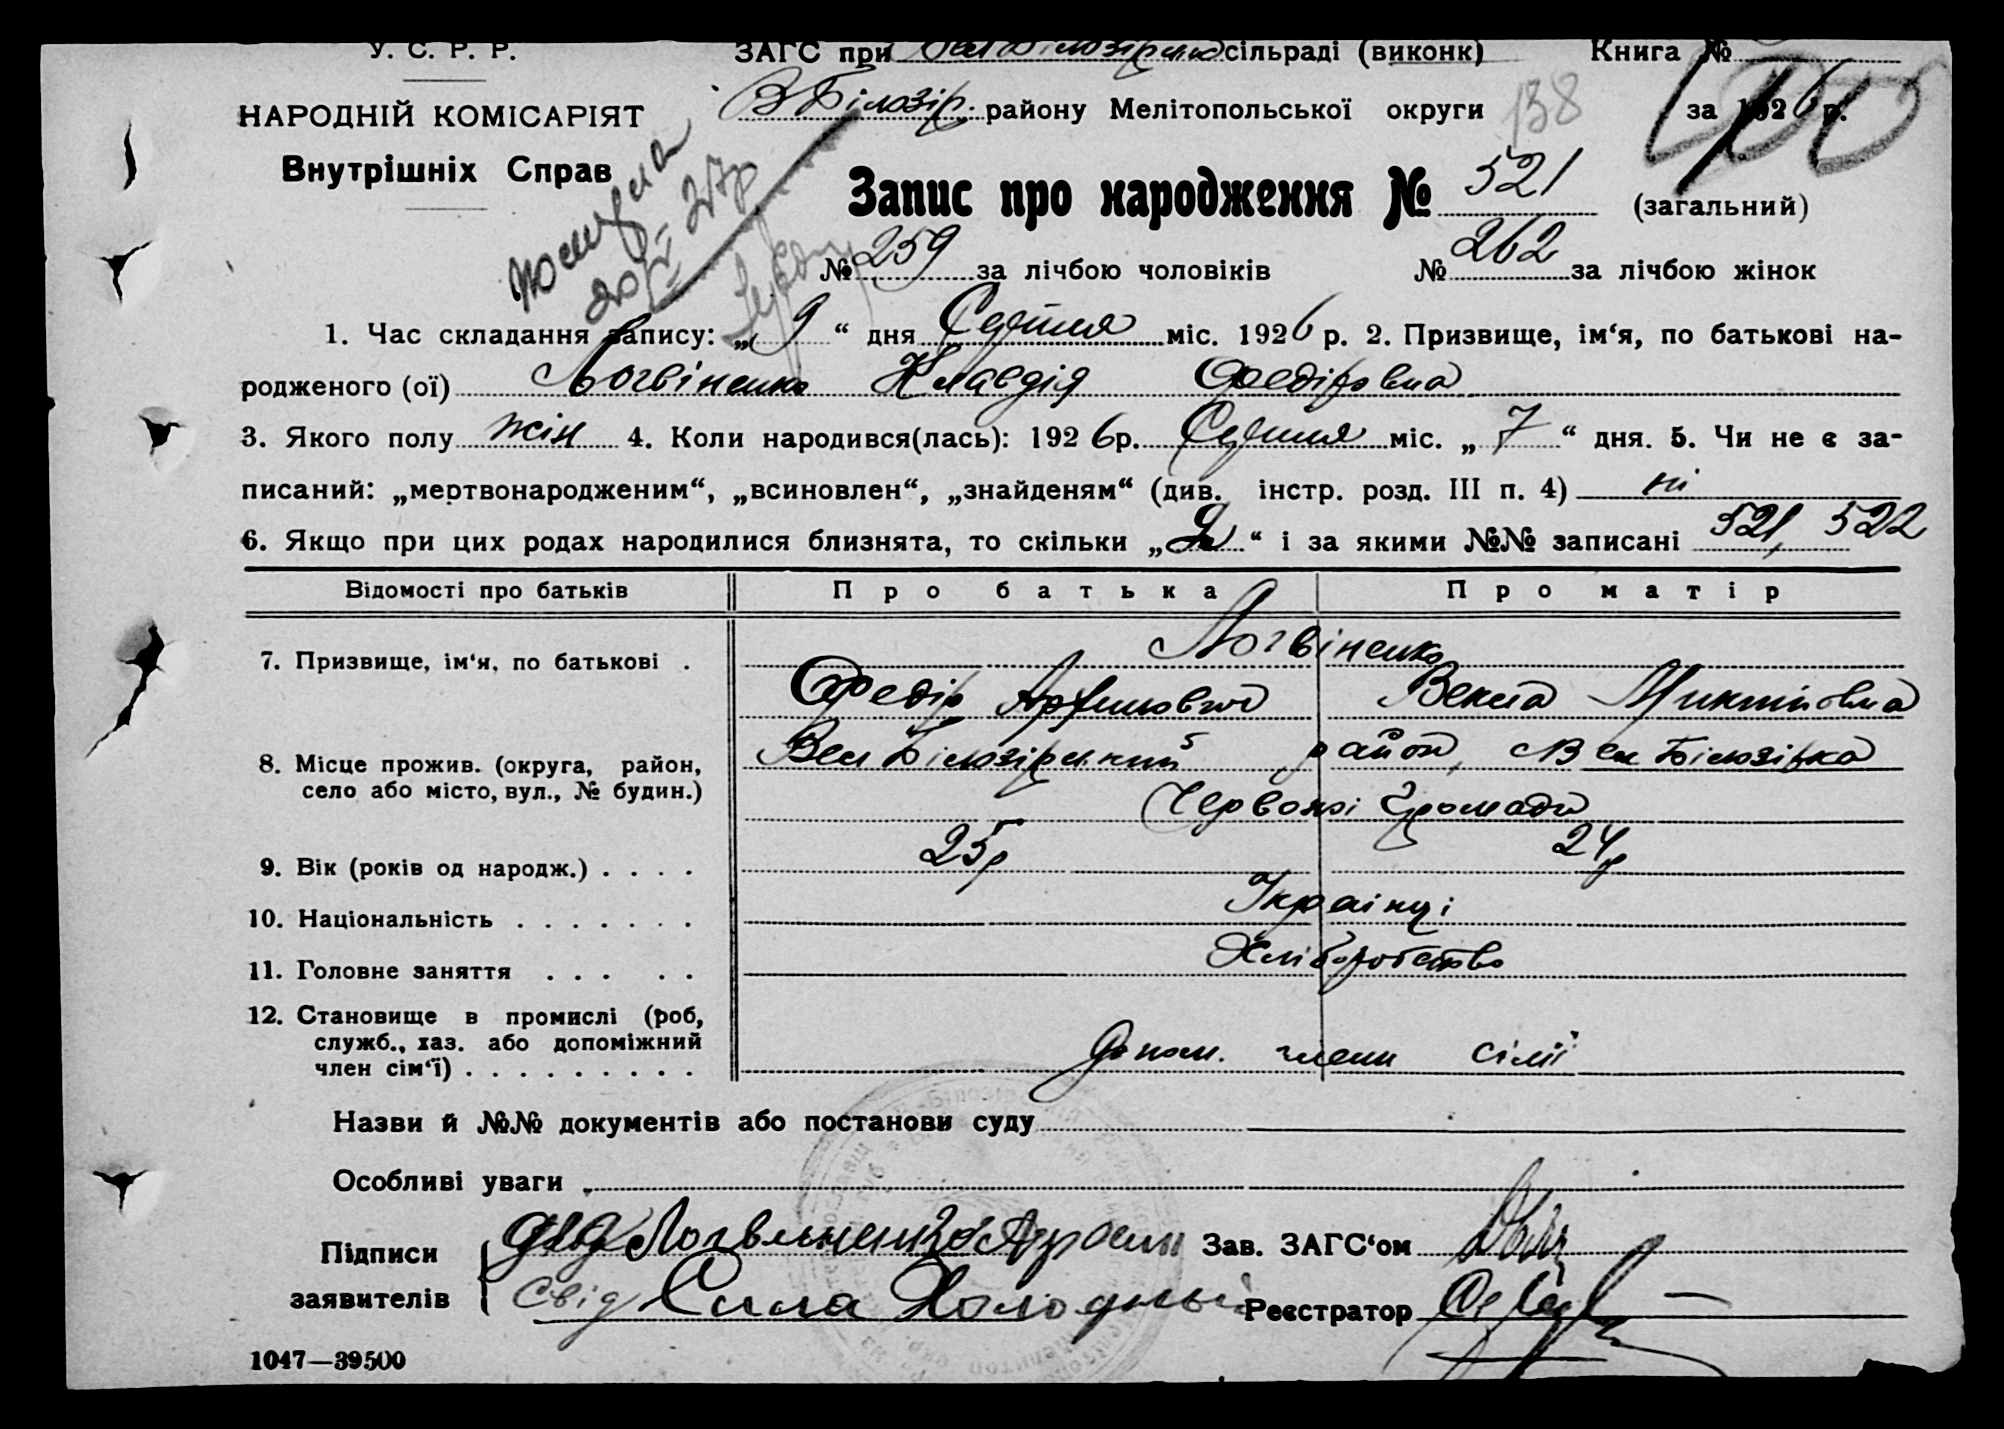 У. С. Р. Р.
ЗАГС при Вел Білозірцю сільраді (виконк) Книга №
НАРОДНІЙ КОМІСАРІЯТ
В Білозір. району Мелітопольської округи 138 за 1926 р.
Внутрішніх Справ
Запис про народження № 521 (загальний)
№ 259 за лічбою чоловіків № 262 за лічбою жінок
1. Час складання запису: „ 9 “ дня Серпня міс. 1926 р. 2. Призвище, ім‘я, по батькові на-
родженого (ої) Логвіненко Клавдія Федіровна
3. Якого полу жін 4. Коли народився(лась): 1926 р. Серпня міс. „ 7 “ дня. 5. Чи не є за-
писаний: „мертвонародженим“, „всиновлен“, „знайденям“ (див. інстр. розд. III п. 4) ні
6. Якщо при цих родах народилися близнята, то скільки „ 2 “ і за якими №№ записані 521, 522
Відомості про батьків Про батька Про матір
7. Призвище, ім‘я, по батькові . Логвіненко
Федір Артемович Векла Микитовна
8. Місце прожив. (округа, район, Вел Білозірський район, Вел Білозірка
село або місто, вул., № будин.)
Червоної Громади
9. Вік (років од народж.) . . . . 25 р 24 р
10. Національність . . . . . . . Українці
11. Головне заняття . . . . . Хліборобство
12. Становище в промислі (роб,
служб., хаз. або допоміжний
член сім‘ї) . . . . . . . . . Допом. члени сімї
Назви й №№ документів або постанови суду
Особливі уваги
Підписи Зав. ЗАГС‘ом
заявителів свід Сила Холодный Реєстратор
1047—39500